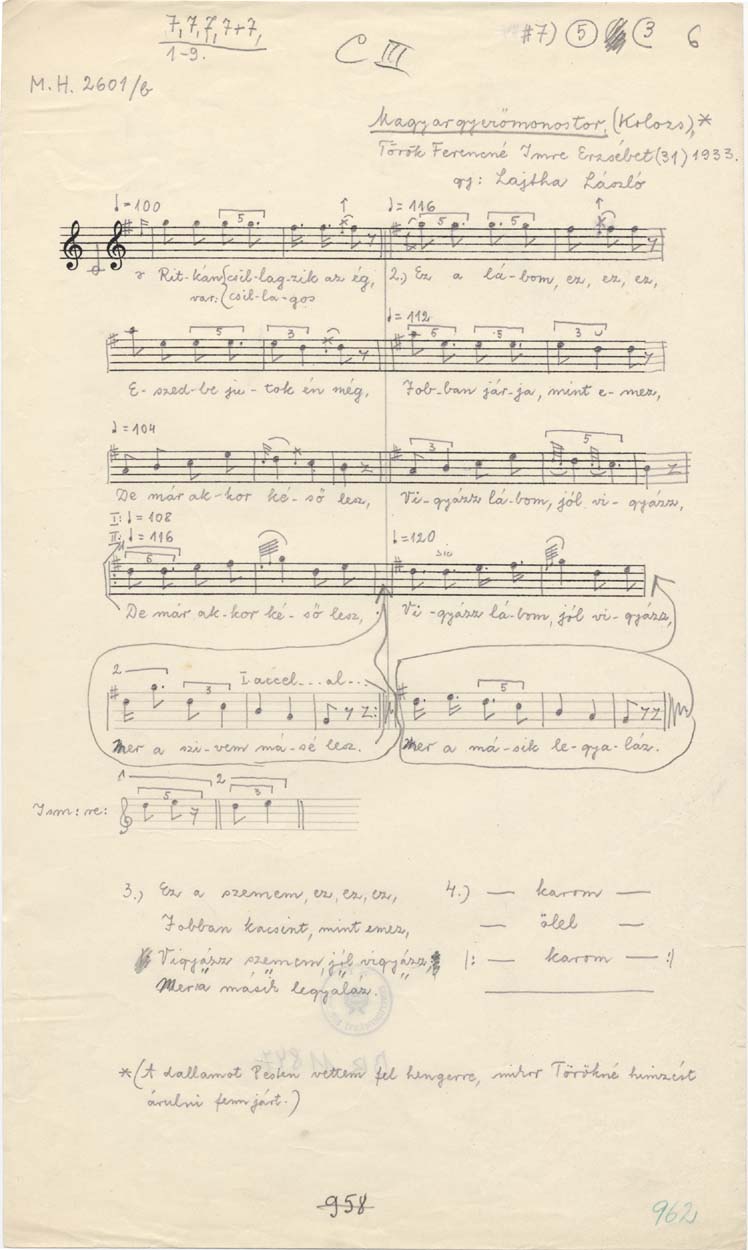 7, 7, 7, 7+7,
1-9.
C III
#7) 5 3 6
M.H. 2601/b
Magyargyerőmonostor, (Kolozs),*
Török Ferencné Imre Erzsébet (31) 1933.
gy: Lajtha László
♩=100 ♩=116
5 5 5
Rit-kán csil-lag-zik az ég, 2.) Ez a lá-bom, ez, ez, ez,
var: csil-la-gos
♩=112
5 3 5 5 3
E-szed-be ju-tok én még, Job-ban jár-ja, mint e-mez,
♩=104
3 5
De már ak-kor ké-ső lesz, Vi-gyázz lá-bom, jól vi-gyázz,
I: ♩=108
II: ♩=116 ♩=120
1 5 sic
De már ak-kor ké-ső lesz, Vi-gyázz lá-bom, jól vi-gyázz,
2 3 I accel...al... 5
Mer a szi-vem má-sé lesz. Mer a má-sik le-gya-láz.
1 2
Ism:re: 5 3
3.) Ez a szemem, ez, ez, ez, 4.) — karom —
Jobban kacsint, mint emez, — ölel —
Vigyázz szemem, jól vigyázz, |: — karom — :|
Mer a másik legyaláz.
*(A dallamot Pesten vettem fel hengerre, mikor Törökné himzést
árulni fenn járt.)
958
962